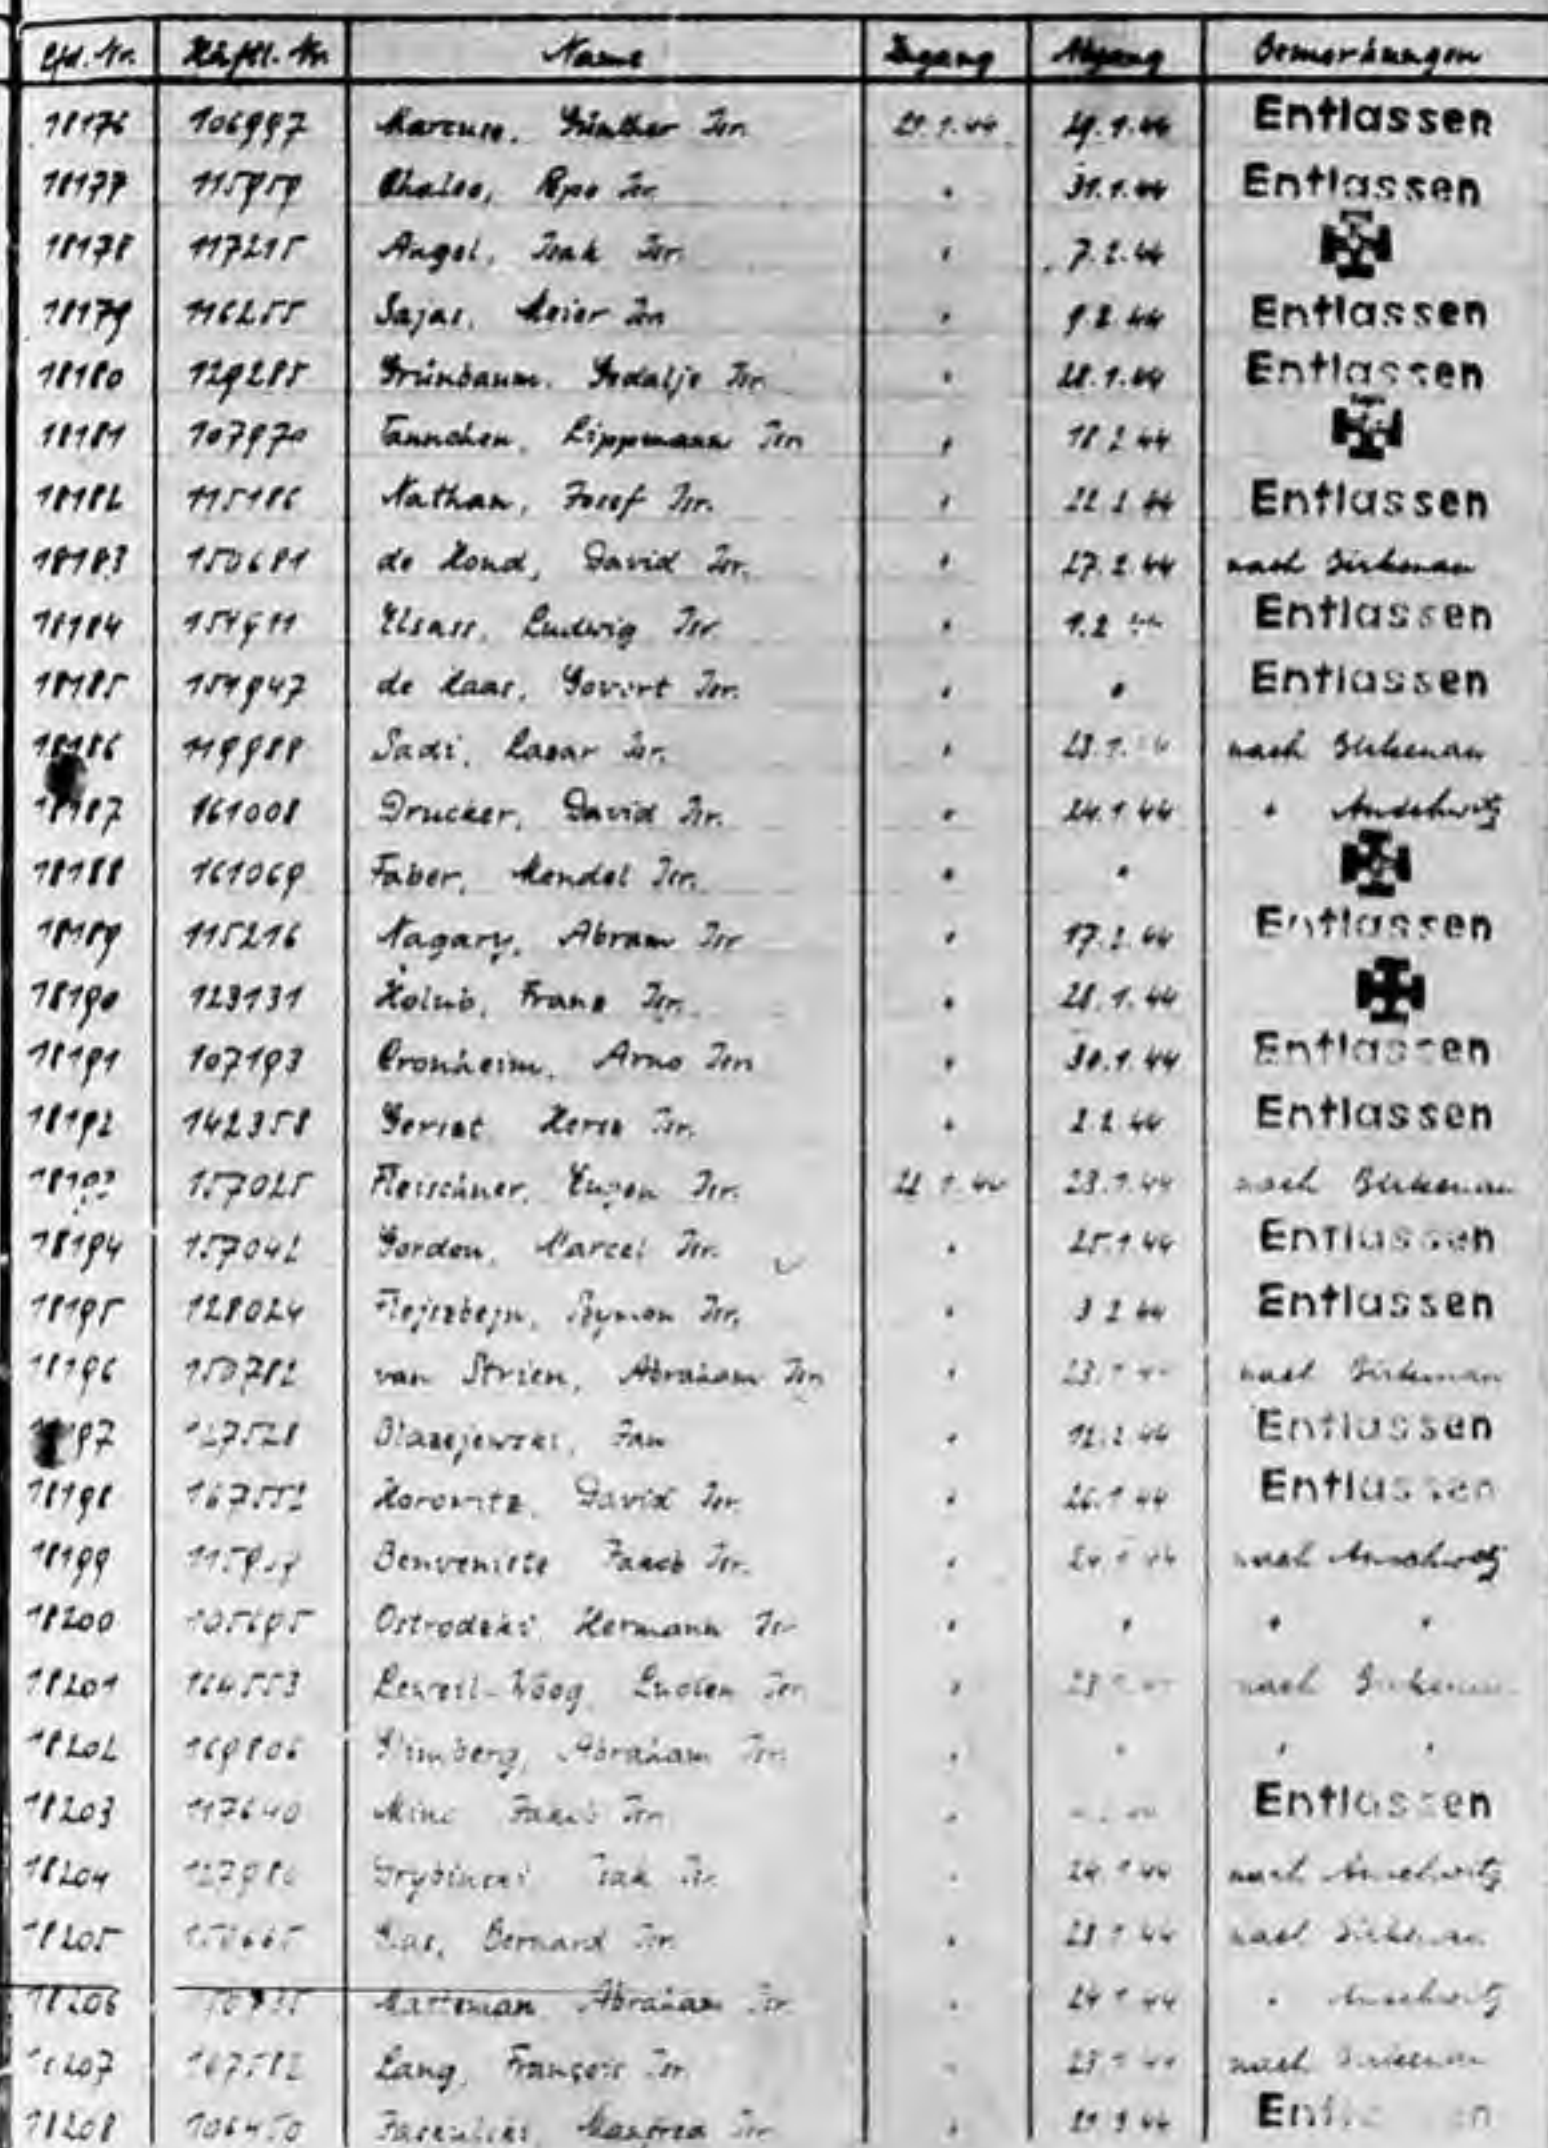 Lfd. Nr. Häftl.-Nr. Name Zugang Abgang Bemerkungen
18176 106997 Marcuse, Günther Isr. 21.1.44 29.1.44 Entlassen
18177 115959 Isr. " 31.1.44 Entlassen
18178 117215 Angel, Isak Isr. " 7.2.44
18179 116255 Sajas, Meier Isr. " 9.2.44 Entlassen
18180 129285 Grünbaum, Gedalje Isr. " 28.1.44 Entlassen
18181 107970 Tannchen, Lippmann Isr. " 18.2.44
18182 115186 Nathan, Josef Isr. " 22.2.44 Entlassen
18183 150681 de Hond, David Isr. " 27.2.44 nach Birkenau
18184 154911 Elsass, Ludwig Isr. " 1.2.44 Entlassen
18185 154947 de Haas, Govert Isr. " " Entlassen
18186 119988 Sadi, Lazar Isr. " 23.1. nach Birkenau
18187 161008 Drucker, David Isr. " 24.1.44 " Auschwitz
18188 161069 Faber, Mendel Isr. " "
18189 115216 Nagary, Abram Isr. " 17.2.44 Entlassen
18190 123131 Holub, Franz Isr. " 28.1.44
18191 107193 Cronheim, Arno Isr. " 30.1.44 Entlassen
18192 142358 Hersz Isr. " 2.2.44 Entlassen
18193 157025 Fleischner, Eugen Isr. 22.1.44 23.1.44 nach Birkenau
18194 157042 Gordon, Marcel Isr. " 25.1.44 Entlassen
18195 128024 Flejszbejn, Szymon Isr. " 3.2.44 Entlassen
18196 150782 van Strien, Abraham Isr. " 23.1. nach Birkenau
Blazejewski, Jan " 12.2.44 Entlassen
18198 167552 Horowitz, David Isr. " 26.1.44 Entlassen
18199 Benveniste Jakob Isr. " 24.1.44 nach Auschwitz
18200 105695 Ostrodzki Hermann Isr. " " " "
18201 164553 Lucien Isr. " nach Birkenau
18202 169806 Abraham Isr. " " " "
18203 117640 Isr. " Entlassen
18204 Isak Isr. " 24.1.44 nach Auschwitz
18205 Bernard Isr. " 23.1.44 nach Birkenau
18206 Abraham Isr. " 24.1.44 " Auschwitz
18207 167582 Lang, François Isr. " 23.1.44 nach Birkenau
18208 106450 Manfred Isr. "